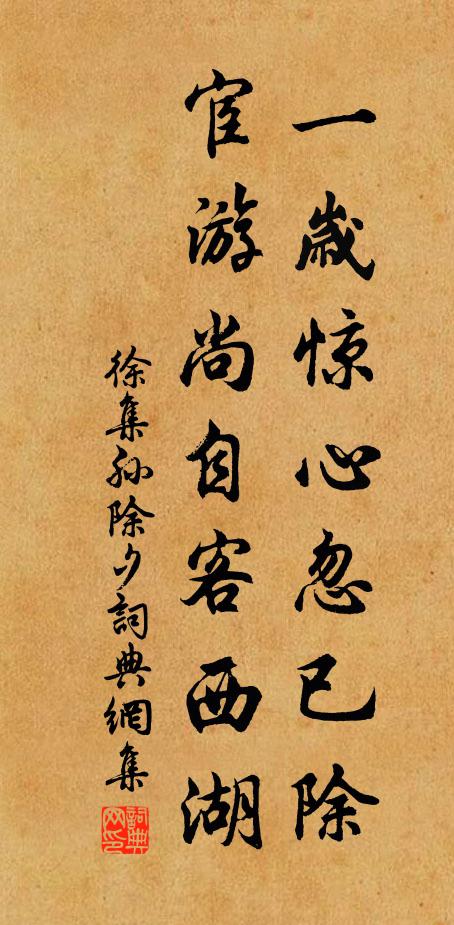 一歲惊心忽已除
宦游尚自客西湖
徐集孙除夕詞典網集
詞典网印